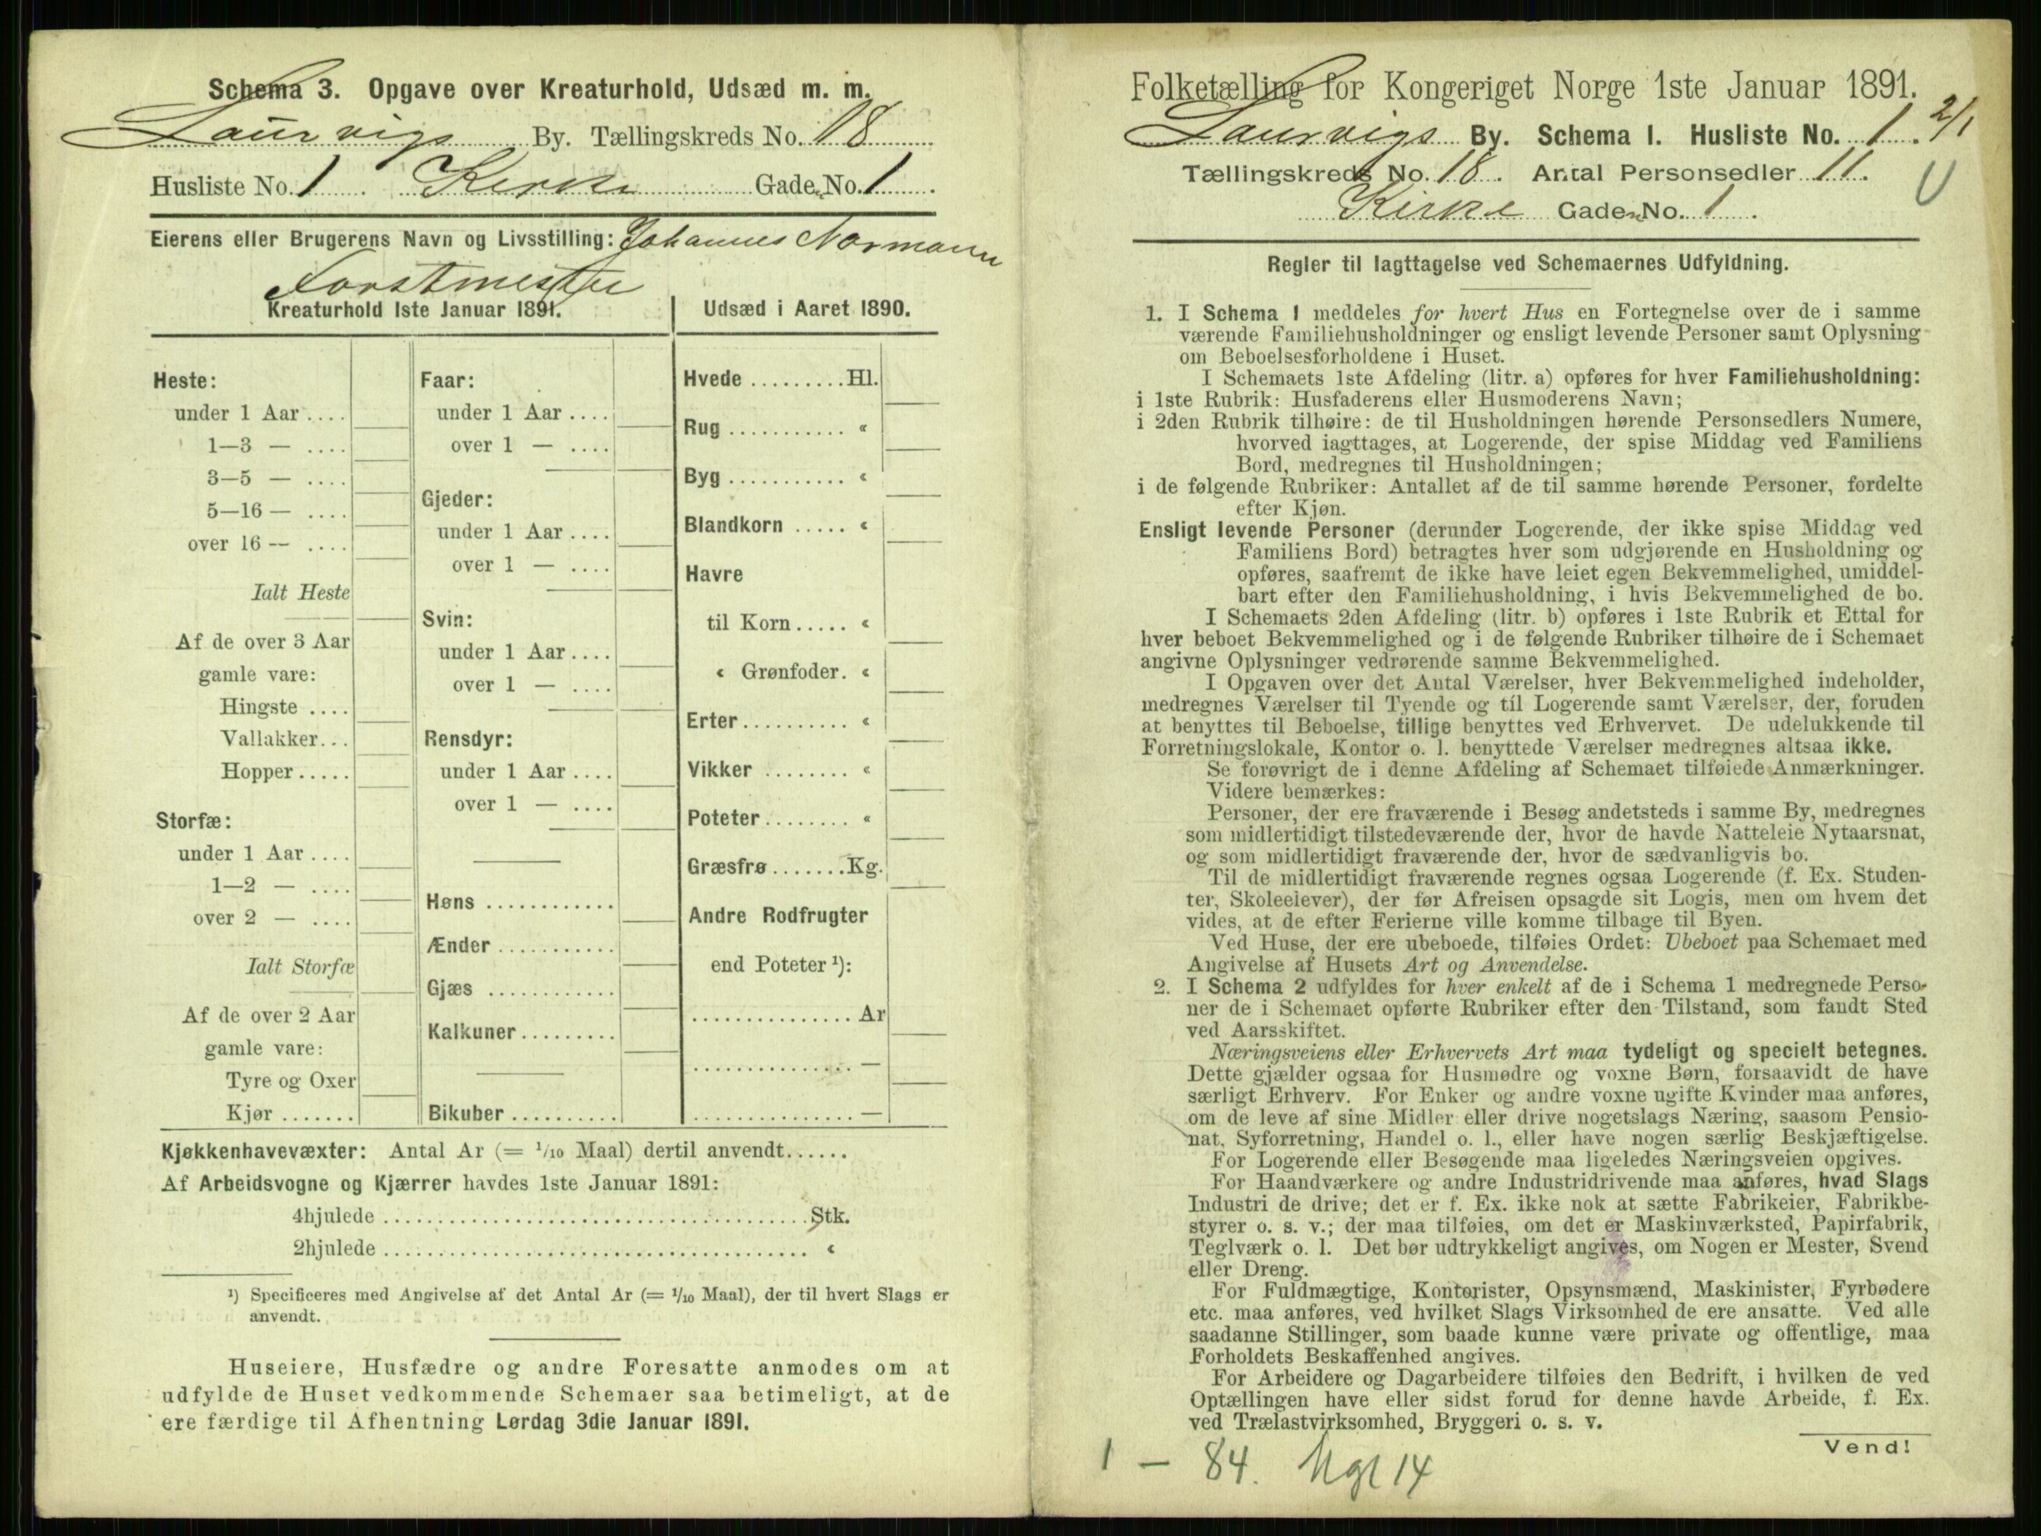 Schema 3. Opgave over Kreaturhold, Udsæd m. m.
Laurvigs By. Tællingskreds No. 18
Husliste No. 1 Kirke Gaden No. 1
Eierens eller Brugerens Navn og Livsstilling: Johannes Normann
Forstmester
Kreaturhold 1ste Januar 1891.
Heste:
under 1 Aar ....
1—3 — ....
3—5 — ....
5—16 — ....
over 16 — ....
Ialt Heste
Af de over 3 Aar
gamle vare:
Hingste ....
Vallakker...
Hopper.....
Storfæ:
under 1 Aar ....
1—2 — ....
over 2 — ....
Ialt Storfæ
Af de over 2 Aar
gamle vare:
Tyre og Oxer
Kjør .......
Faar:
under 1 Aar ....
over 1 — ....
Gjeder:
under 1 Aar ....
over 1 — ....
Svin:
under 1 Aar ....
over 1 — ....
Rensdyr:
under 1 Aar ....
over 1 — ....
Høns ............
Ænder ...........
Gjæs ............
Kalkuner.........
Bikuber ..........
Udsæd i Aaret 1890.
Hvede .........Hl.
Rug ........... «
Byg ........... «
Blandkorn ..... «
Havre
til Korn..... «
« Grønfoder. «
Erter.......... «
Vikker ........ «
Poteter........ «
Græsfrø .......Kg.
Andre Rodfrugter
end Poteter ¹):
............... Ar
............... —
............... —
Kjøkkenhavevæxter: Antal Ar (= 1/10 Maal) dertil anvendt......
Af Arbeidsvogne og Kjærrer havdes 1ste Januar 1891:
4hjulede ........................................Stk.
2hjulede ........................................ «
¹) Specificeres med Angivelse af det Antal Ar (= 1/10 Maal), der til hvert Slags er
anvendt.
Huseiere, Husfædre og andre Foresatte anmodes om at
udfylde de Huset vedkommende Schemaer saa betimeligt, at de
ere færdige til Afhentning Lørdag 3die Januar 1891.
Folketælling for Kongeriget Norge 1ste Januar 1891.
Laurvigs By. Schema I. Husliste No. 1. 2/1
Tællingskreds No. 18. Antal Personsedler 11. U
Kirke Gaden No. 1.
Regler til Iagttagelse ved Schemaernes Udfyldning.
1. I Schema 1 meddeles for hvert Hus en Fortegnelse over de i samme
værende Familiehusholdninger og ensligt levende Personer samt Oplysning
om Beboelsesforholdene i Huset.
I Schemaets 1ste Afdeling (litr. a) opføres for hver Familiehusholdning:
i 1ste Rubrik: Husfaderens eller Husmoderens Navn;
i 2den Rubrik tilhøire: de til Husholdningen hørende Personsedlers Numere,
hvorved iagttages, at Logerende, der spise Middag ved Familiens
Bord, medregnes til Husholdningen;
i de følgende Rubriker: Antallet af de til samme hørende Personer, fordelte
efter Kjøn.
Ensligt levende Personer (derunder Logerende, der ikke spise Middag ved
Familiens Bord) betragtes hver som udgjørende en Husholdning og
opføres, saafremt de ikke have leiet egen Bekvemmelighed, umiddel-
bart efter den Familiehusholdning, i hvis Bekvemmelighed de bo.
I Schemaets 2den Afdeling (litr. b) opføres i 1ste Rubrik et Ettal for
hver beboet Bekvemmelighed og i de følgende Rubriker tilhøire de i Schemaet
angivne Oplysninger vedrørende samme Bekvemmelighed.
I Opgaven over det Antal Værelser, hver Bekvemmelighed indeholder,
medregnes Værelser til Tyende og til Logerende samt Værelser, der, foruden
at benyttes til Beboelse, tillige benyttes ved Erhvervet. De udelukkende til
Forretningslokale, Kontor o. l. benyttede Værelser medregnes altsaa ikke.
Se forøvrigt de i denne Afdeling af Schemaet tilføiede Anmærkninger.
Videre bemærkes:
Personer, der ere fraværende i Besøg andetsteds i samme By, medregnes
som midlertidigt tilstedeværende der, hvor de havde Natteleie Nytaarsnat,
og som midlertidigt fraværende der, hvor de sædvanligvis bo.
Til de midlertidigt fraværende regnes ogsaa Logerende (f. Ex. Studen-
ter, Skoleelever), der før Afreisen opsagde sit Logis, men om hvem det
vides, at de efter Ferierne ville komme tilbage til Byen.
Ved Huse, der ere ubeboede, tilføies Ordet: Ubeboet paa Schemaet med
Angivelse af Husets Art og Anvendelse.
2. I Schema 2 udfyldes for hver enkelt af de i Schema 1 medregnede Perso-
ner de i Schemaet opførte Rubriker efter den Tilstand, som fandt Sted
ved Aarsskiftet.
Næringsveiens eller Erhvervets Art maa tydeligt og specielt betegnes.
Dette gjælder ogsaa for Husmødre og voxne Børn, forsaavidt de have
særligt Erhverv. For Enker og andre voxne ugifte Kvinder maa anføres,
om de leve af sine Midler eller drive nogetslags Næring, saasom Pensio-
nat, Syforretning, Handel o. l., eller have nogen særlig Beskjæftigelse.
For Logerende eller Besøgende maa ligeledes Næringsveien opgives.
For Haandværkere og andre Industridrivende maa anføres, hvad Slags
Industri de drive; det er f. Ex. ikke nok at sætte Fabrikeier, Fabrikbe-
styrer o. s. v.; der maa tilføies, om det er Maskinværksted, Papirfabrik,
Teglværk o. l. Det bør udtrykkeligt angives, om Nogen er Mester, Svend
eller Dreng.
For Fuldmægtige, Kontorister, Opsynsmænd, Maskinister, Fyrbødere
etc. maa anføres, ved hvilket Slags Virksomhed de ere ansatte. Ved alle
saadanne Stillinger, som baade kunne være private og offentlige, maa
Forholdets Beskaffenhed angives.
For Arbeidere og Dagarbeidere tilføies den Bedrift, i hvilken de ved
Optællingen have eller sidst forud for denne havde Arbeide, f. Ex.
ved Trælastvirksomhed, Bryggeri o. s. v.
Vend!
1 — 84. Mgl 14